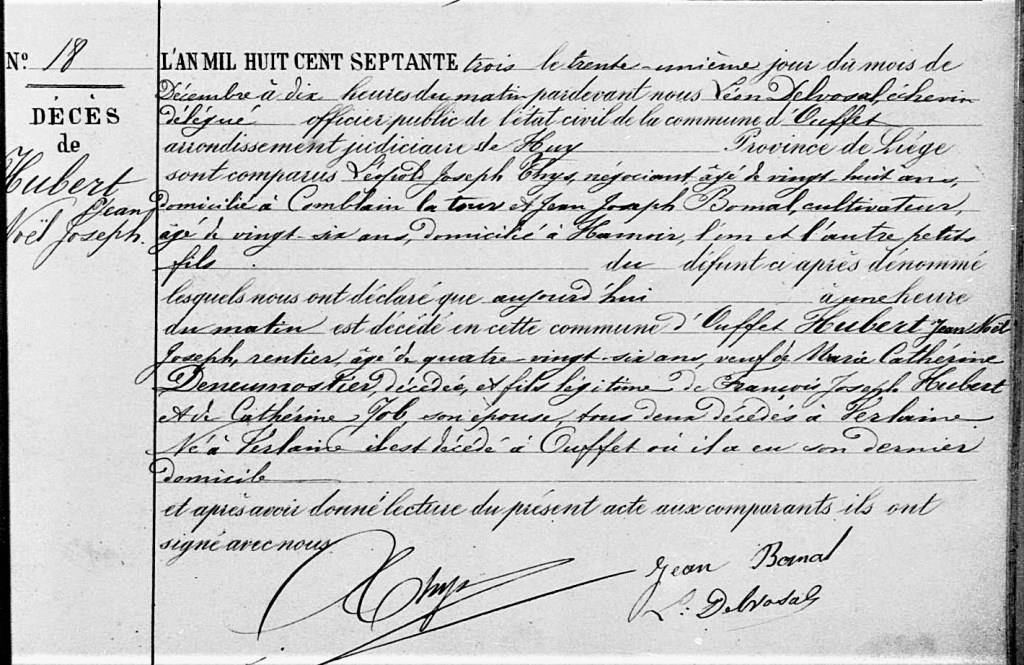 N.º 18
DÉCÈS
de
Hubert
Jean
Noël Joseph.
L'AN MIL HUIT CENT SEPTANTE trois le trente-unième jour du mois de
Décembre à dix heures du matin pardevant nous Léon Delvosal, échevin
délégué officier public de l'état civil de la commune d'Ouffet
arrondissement judiciaire de Huy Province de Liége
sont comparus Léopold Joseph Thys, négociant âgé de vingt-huit ans,
domicilié à Comblain la tour et Jean Joseph Bomal, cultivateur,
âgé de vingt-six ans, domicilié à Hamoir, l'un et l'autre petits
fils du défunt ci après dénommé
lesquels nous ont déclaré que aujourd'hui à une heure
du matin est décédé en cette commune d'Ouffet Hubert Jean Noël
Joseph, rentier, âgé de quatre-vingt-six ans, veuf de Marie Cathérine
Deneumostier, décédée, et fils légitime de François Joseph Hubert
et de Cathérine Job, son épouse, tous deux décédés à Verlaine
Né à Verlaine il est décédé à Ouffet où il a eu son dernier
domicile
et après avoir donné lecture du présent acte aux comparants ils ont
signé avec nous
Thys
Jean Bomal
L. Delvosal